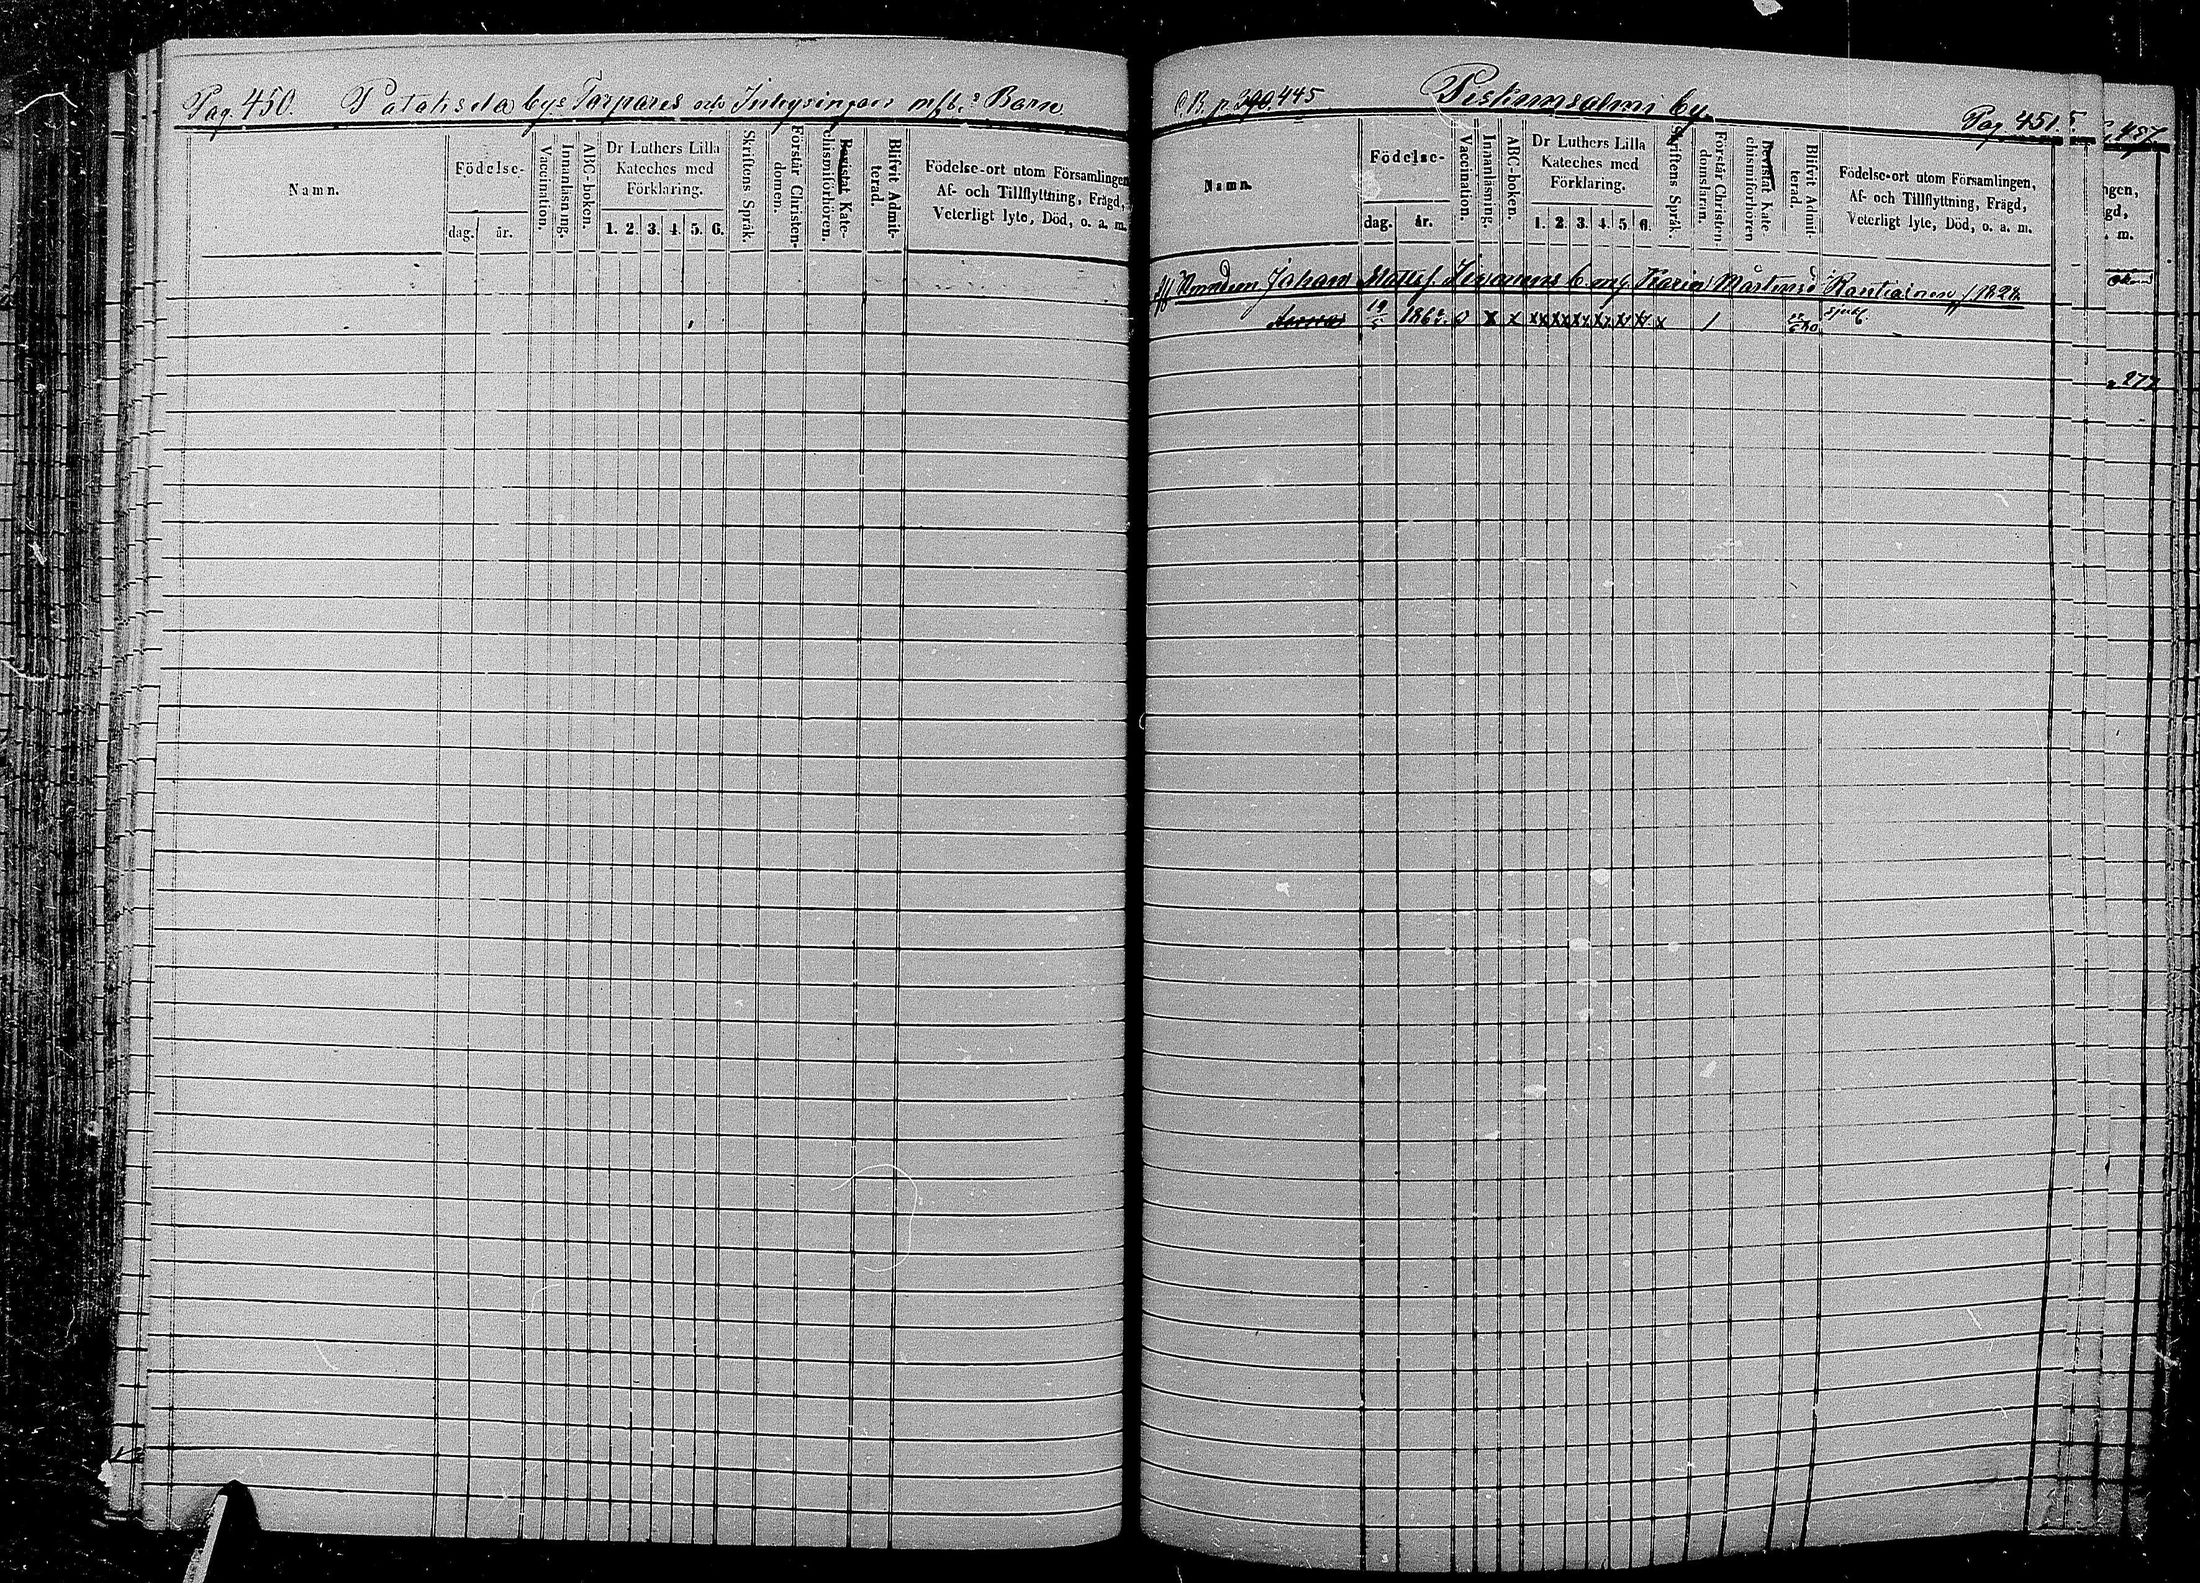 Pag. 450. Pataksela bys Torpares och Inhysingars m. fl:s Barn
Namn.
Födelse-
dag. år.
Vaccination.
Innanläsning.
ABC-boken.
Dr Luthers Lilla
Kateches med
Förklaring.
1. 2. 3. 4. 5. 6.
Skriftens Språk.
Förstår Christen-
domen.
Bevistat Kate-
chismiförhören.
Blifvit Admit-
terad.
Födelse-ort utom Församlingen
Af- och Tillflyttning, Frägd,
Veterligt lyte, Död, o. a. m.
C. B. p. 390. 445 by. Pag 451.
Namn.
Födelse-
dag. år.
Vaccination.
Innanläsning.
ABC-boken.
Dr Luthers Lilla
Kateches med
Förklaring.
1. 2. 3. 4. 5. 6.
Skriftens Språk.
Förstår Christen-
domsläran.
Bevistat Kate
chismiförhören
Blifvit Admit-
terad.
Födelse-ort utom Församlingen,
Af- och Tillflyttning, Frägd,
Veterligt lyte, Död, o. a. m.
Johan Matts s. b. m. Karin Mårtensd:r Rautiainen f. 1828.
19/5 186 0 x x xx xx xx xx xx xx x 1 80
457
ngen,
gd,
. m.
277